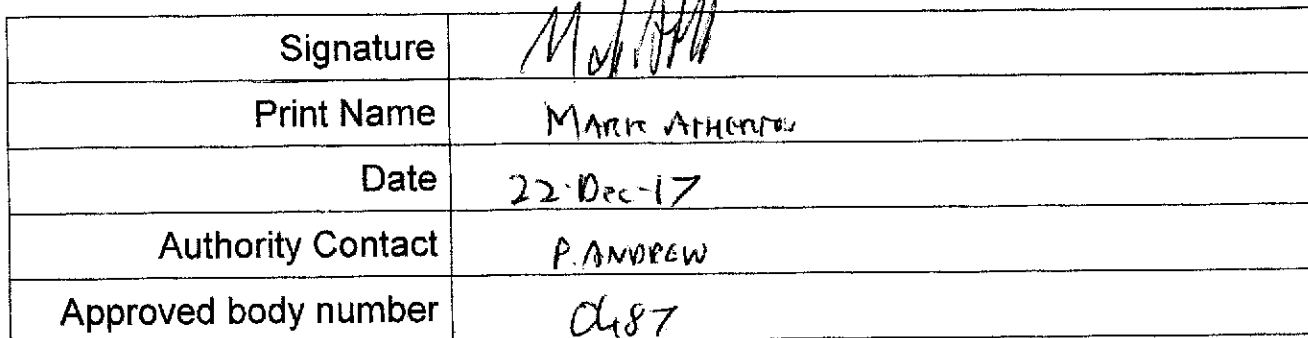 Signature
Print Name MARK ATHERTON
Date 22-Dec-17
Authority Contact P. ANDREW
Approved body number 0487